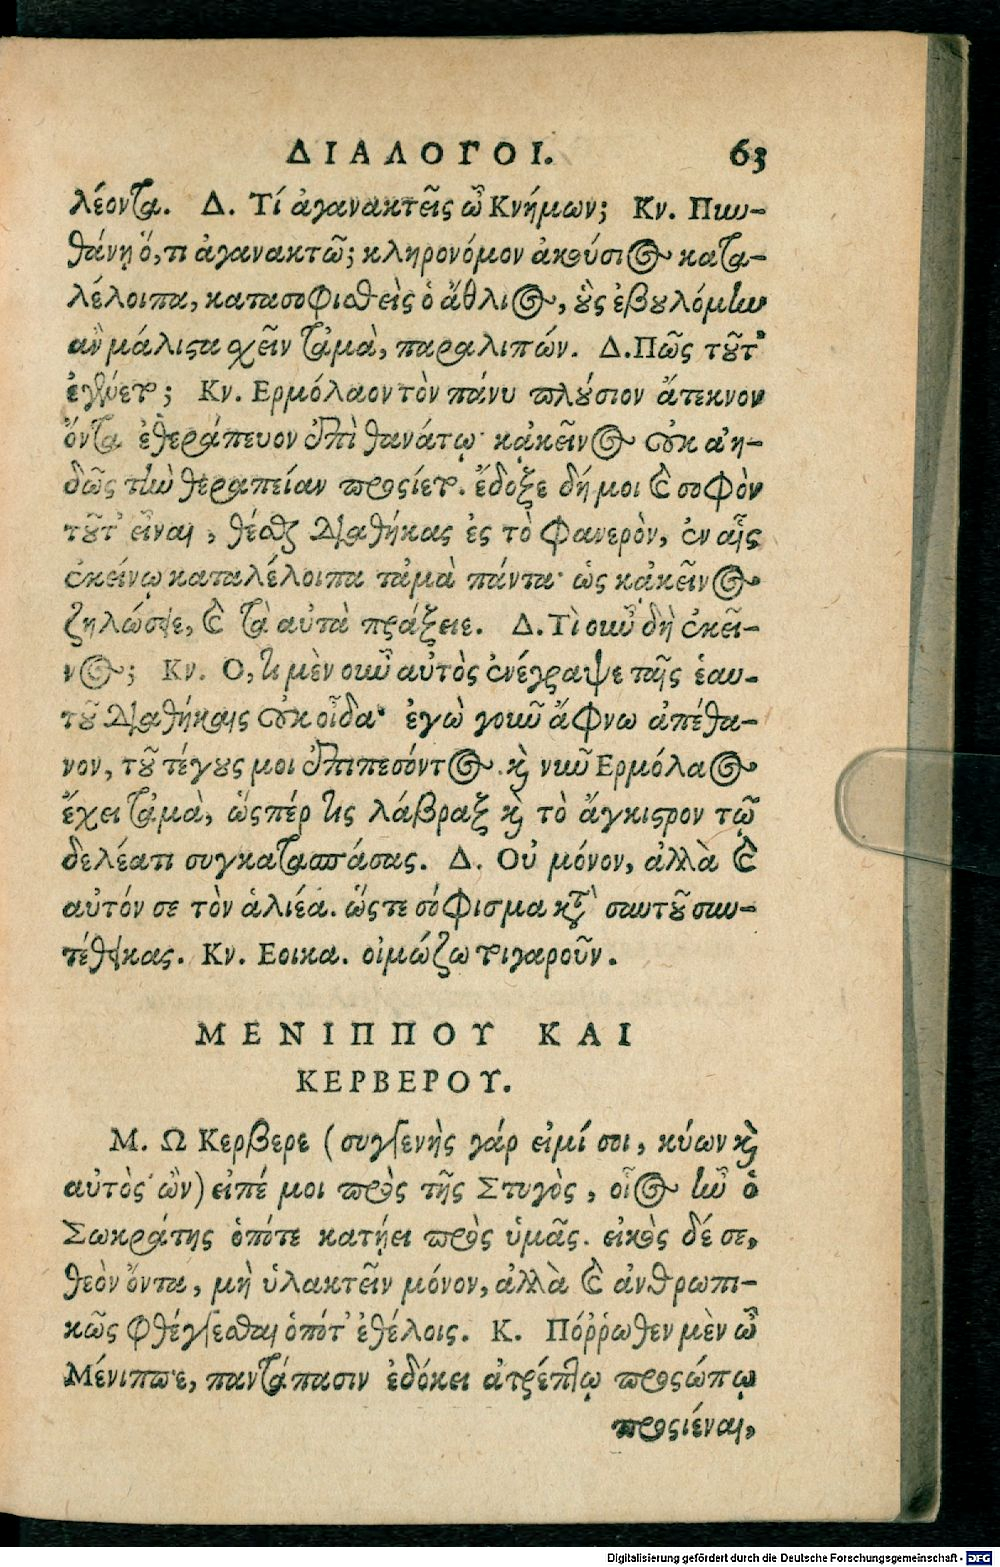 ΔΙΑΛΟΓΟΙ. 63
λέοντα. Δ. Τί ἀγανακτεῖς ὦ Κνήμων; Κν. Πυν-
θάνῃ ὅ,τι ἀγανακτῶ; κληρονόμον ἀκούσιος κατα-
λέλοιπα, κατασοφισθεὶς ὁ ἄθλιος, οὓς ἐβουλόμην
ἂν μάλιστα σχεῖν τἀμὰ, παραλιπών. Δ. Πῶς τοῦτ'
ἐγένετο; Κν. Ερμόλαον τὸν πάνυ πλούσιον ἄτεκνον
ὄντα ἐθεράπευον ἐπὶ θανάτῳ· κᾀκεῖνος οὐκ ἀη-
δῶς τὴν θεραπείαν προσίετο. ἔδοξε δή μοι καὶ σοφὸν
τοῦτ' εἶναι, θέσθαι διαθήκας ἐς τὸ φανερὸν, ἐν αἷς
ἐκείνῳ καταλέλοιπα τἀμὰ πάντα· ὡς κᾀκεῖνος
ζηλώσειε, καὶ τὰ αὐτὰ πράξειε. Δ. Τὶ οὖν δὴ ἐκεῖ-
νος; Κν. Ο,τι μὲν οὖν αὐτὸς ἐνέγραψε ταῖς ἑαυ-
τοῦ διαθήκαις οὐκ οἶδα· ἐγὼ γοῦν ἄφνω ἀπέθα-
νον, τοῦ τέγους μοι ἐπιπεσόντος. καὶ νῦν Ερμόλαος
ἔχει τἀμὰ, ὥσπέρ τις λάβραξ καὶ τὸ ἄγκιστρον τῷ
δελέατι συγκατασπάσας. Δ. Οὐ μόνον, ἀλλὰ καὶ
αὐτόν σε τὸν ἁλιέα. ὥστε σόφισμα κατὰ σαυτοῦ συν-
τέθεικας. Κν. Εοικα. οἰμώζω τοιγαροῦν.
ΜΕΝΙΠΠΟΥ ΚΑΙ
ΚΕΡΒΕΡΟΥ.
Μ. Ω Κερβερε (συγγενὴς γάρ εἰμί σοι, κύων καὶ
αὐτὸς ὢν) εἰπέ μοι πρὸς τῆς Στυγὸς, οἷος ἦν ὁ
Σωκράτης ὁπότε κατῄει πρὸς ὑμᾶς. εἰκὸς δέ σε,
θεὸν ὄντα, μὴ ὑλακτεῖν μόνον, ἀλλὰ καὶ ἀνθρωπι-
κῶς φθέγγεσθαι ὁπότ' ἐθέλοις. Κ. Πόῤῥωθεν μὲν ὦ
Μένιππε, παντάπασιν ἐδόκει ἀτρέπτῳ προσώπῳ
προσιέναι,
Digitalisierung gefördert durch die Deutsche Forschungsgemeinschaft - DFG